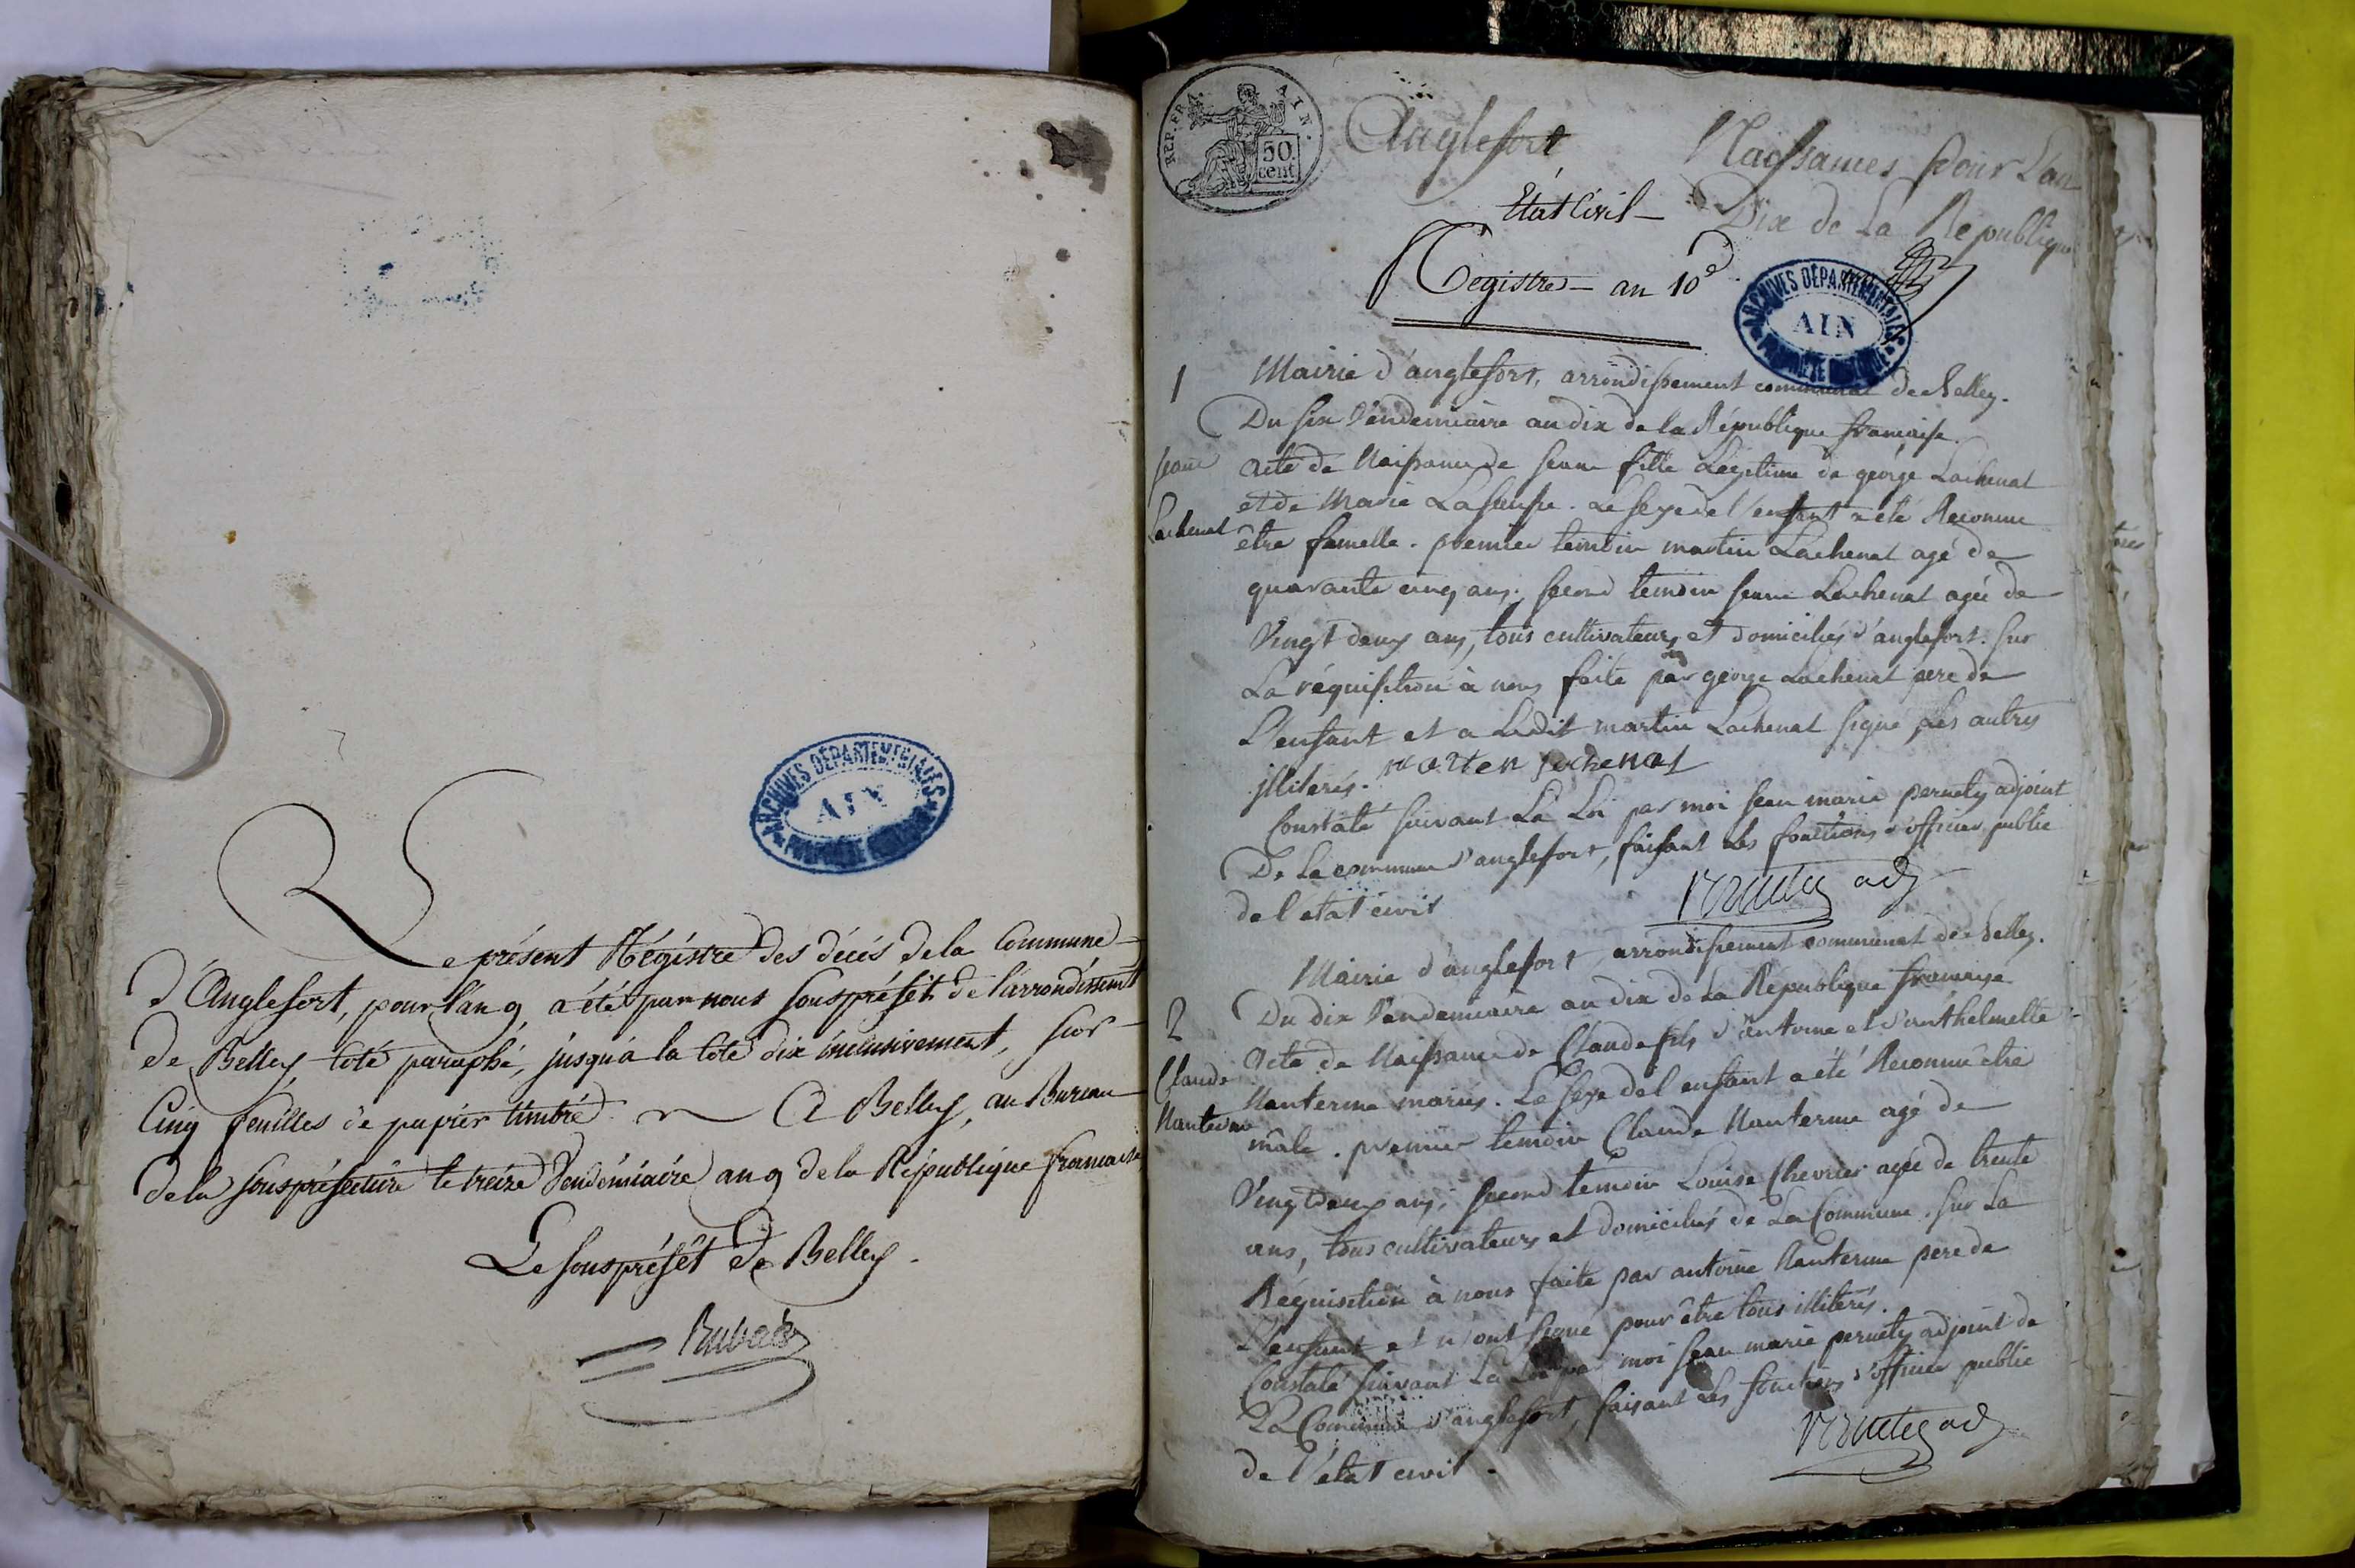 ARCHIVES DÉPARTEMENTALES
AIN
Le présent Régistre des décés de la Commune
d'Anglefort, pour l'an 9 a été par nous souspréfêt de l'arrondissement
de Belley coté paraphé, jusqu'à la cote dix inclusivement, sur
Cinq feuilles de papier timbré. A Belley, au Bureau
de la souspréfecture le treize Vendémiaire an 9 de la République française
Le souspréfêt de Belley.
REP. FRA. AIN.
50 cent
Anglefort
Naissances pour L'an
Dix de La Republique
Etat Civil
Registre an 10e
ARCHIVES DÉPARTEMENTALES
AIN
1
Mairie d'anglefort, arrondissement communal de Belley.
Du six Vendemiaire an dix de la République française.
Jeanne
Lachenal
acte de Naissance de Jeanne fille Légitime de george Lachenal
et de Marie. Le sexe de l'enfant a été Reconnu
être femelle. premier temoin martin Lachenal agé de
quarante cinq ans, second temoin Jeanne Lachenal agée de
Vingt deux ans, tous cultivateurs et domiciliés d'anglefort. sur
La réquisition à nous faite par george Lachenal pere de
L'enfant et a Ledit martin Lachenal signé, Les autres
illiterés. marten Lachenal
Constaté suivant La Loi par moi Jean marie pernety adjoint
De La commune d'anglefort, faisant Les fonctions d'officier public
de l'etat civil
pernety adj
2
Mairie d'anglefort arrondissement communal de Belley.
Du dix Vendemiaire an dix de La République française
Claude
Nanterme
acte de Naissance de Claude fils d'antoine et d'anthelmette
Nanterme mariés. Le sexe del enfant a été Reconnu être
mâle. premier temoin Claude Nanterme agé de
Vingt deux ans, second temoin Louise Chevrier agée de trente
ans, tous cultivateurs et domiciliés de La Commune. sur La
Réquisition à nous faite par antoine Nanterme pere de
L'enfant et n'ont signé pour être tous illiterés.
Constaté suivant La Loi par moi Jean marie pernety adjoint de
La Commune d'anglefort, faisant Les fonctions d'officier public
de L'état civil.
pernety adj